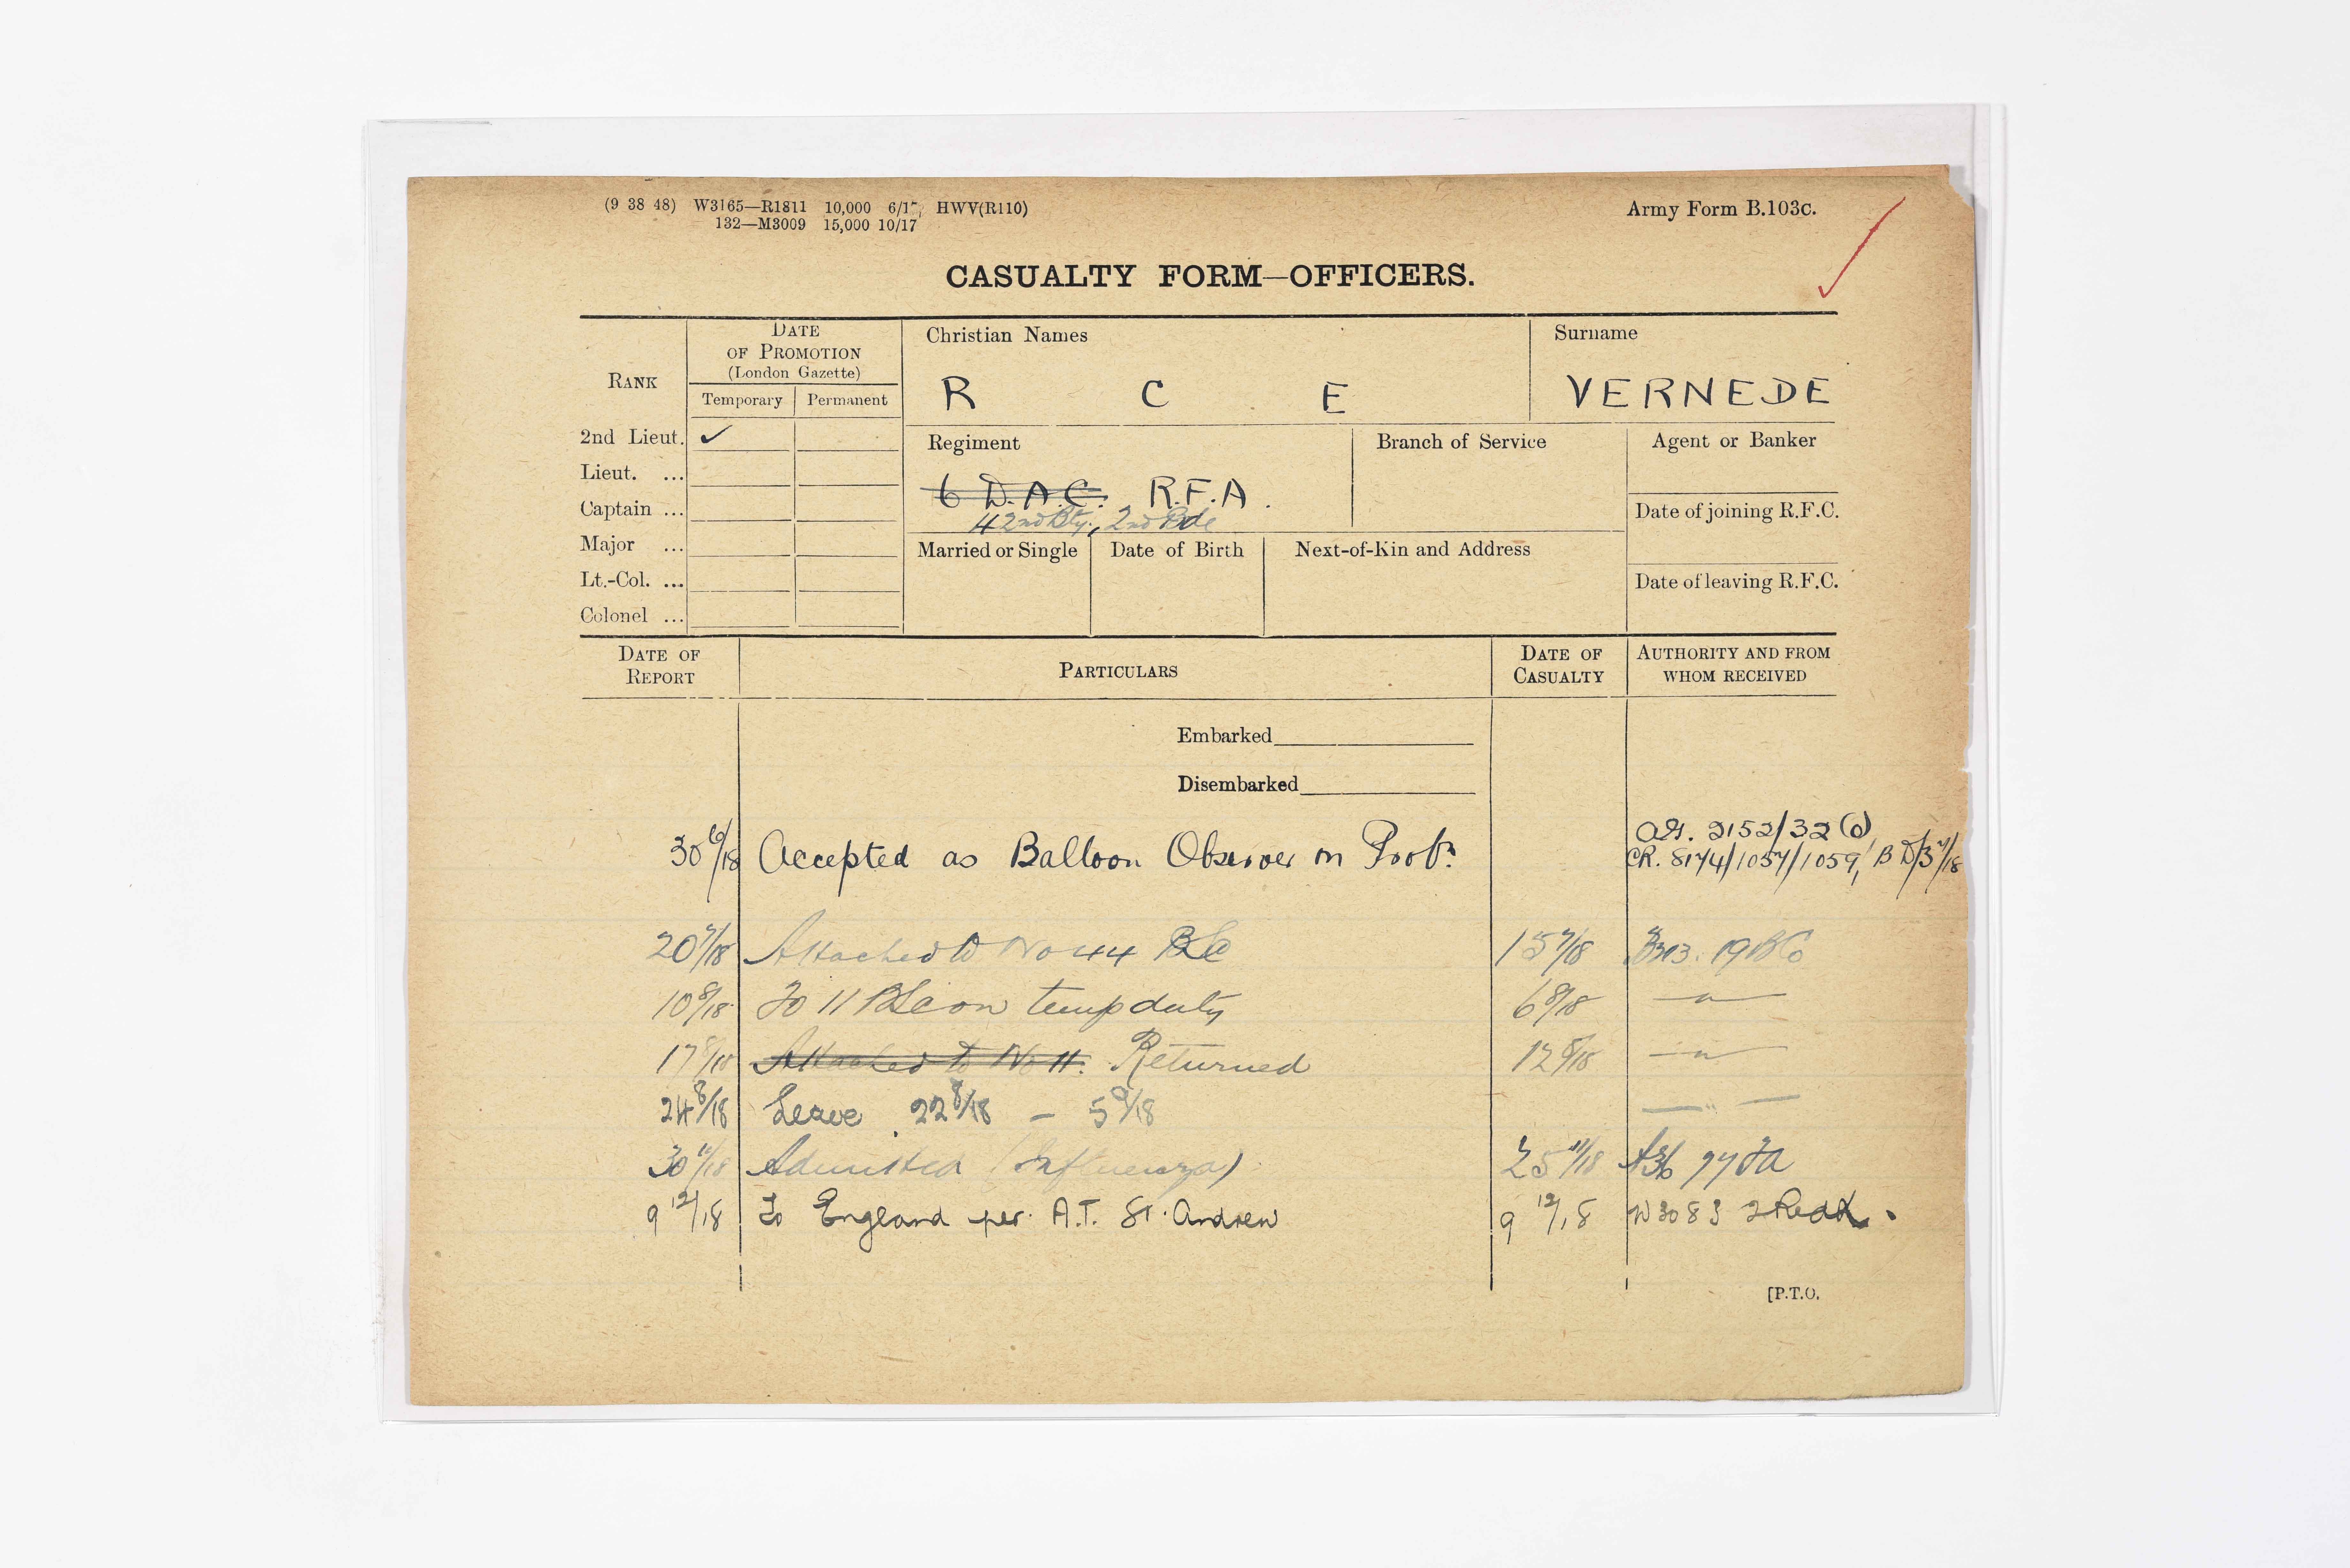 (9 38 48) W3165—R1811 10,000 6/17 HWV(R110)
132—M3009 15,000 10/17
Army Form B.103c.
CASUALTY FORM—OFFICERS.
RANK
DATE OF PROMOTION (London Gazette)
Temporary Permanent
Christian Names
R C E
Surname
VERNEDE
2nd Lieut. ✓
Lieut. ...
Captain ...
Major ...
Lt.-Col. ...
Colonel ...
Regiment
6 D.A.C. R.F.A.
42nd Bty., 2nd Bde
Branch of Service
Agent or Banker
Date of joining R.F.C.
Married or Single
Date of Birth
Next-of-Kin and Address
Date of leaving R.F.C.
DATE OF REPORT
PARTICULARS
DATE OF CASUALTY
AUTHORITY AND FROM WHOM RECEIVED
Embarked
Disembarked
30 6/18 Accepted as Balloon Observer on Probn. 2152/32
CR. 8174/1057/1059, B D/3 7/18
20 7/18 Attached to No 44 BSc 15 7/18 B213. 19BCo
10 8/18 To 11 BSc on temp duty 6 8/18 — " —
17 8/18 Attached to No 11. Returned 12 8/18 — " —
24 8/18 Leave 22 8/18 – 5 9/18 — " —
30 11/18 Admitted (Influenza) 25 11/18 A36 77 FA
9 12/18 To England per. A.T. St. Andrew 9 12/18 W3083 2 RedX.
[P.T.O.